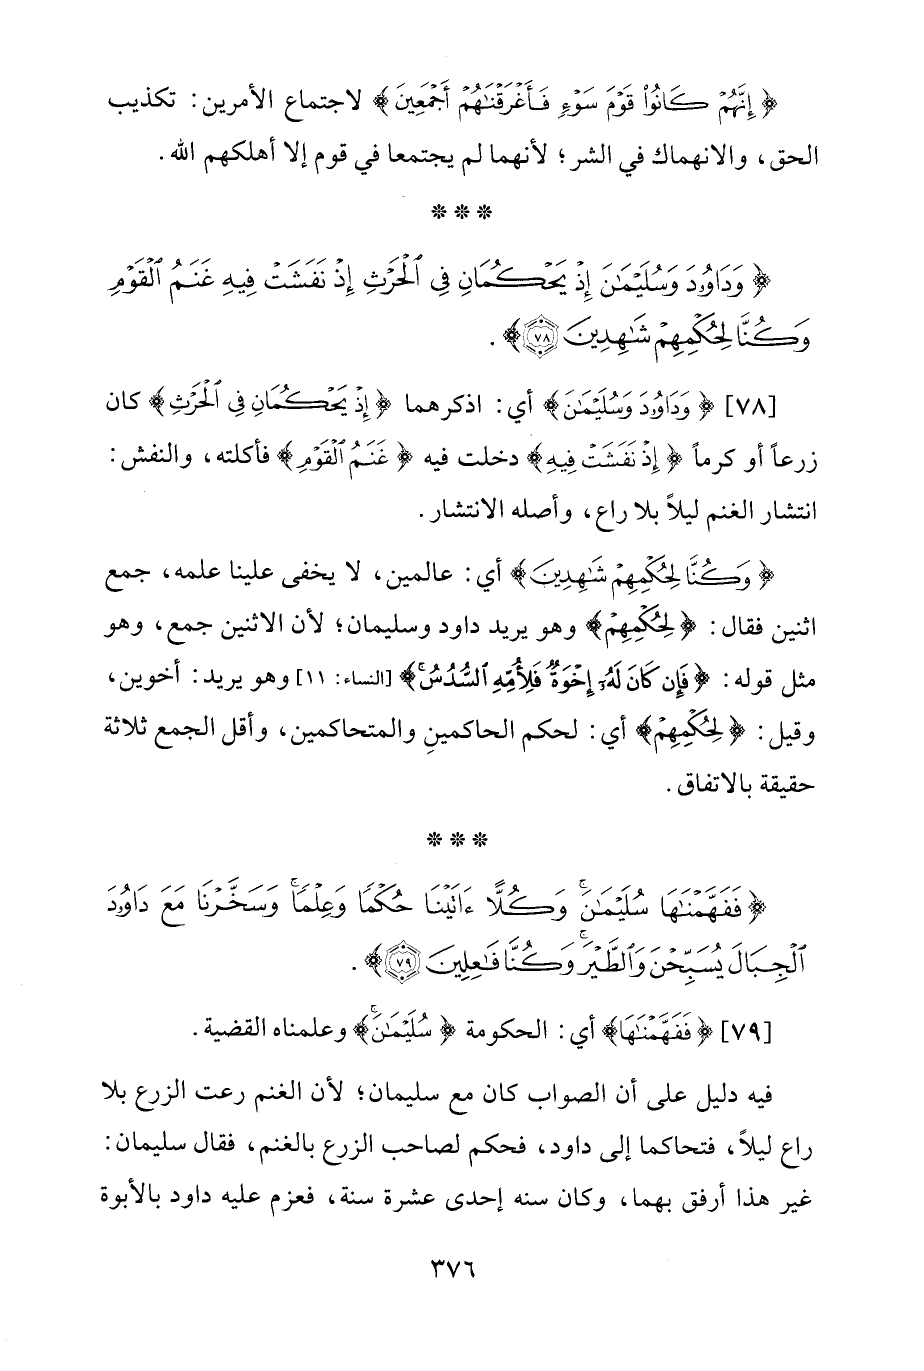 ﴿ إِنَّهُمْ كَانُوا۟ قَوْمَ سَوْءٍ فَأَغْرَقْنَٰهُمْ أَجْمَعِينَ ﴾ لاجتماع الأمرين: تكذيب
الحق، والانهماك في الشر؛ لأنهما لم يجتمعا في قوم إلا أهلكهم الله.
* * *
﴿ وَدَاوُۥدَ وَسُلَيْمَٰنَ إِذْ يَحْكُمَانِ فِى ٱلْحَرْثِ إِذْ نَفَشَتْ فِيهِ غَنَمُ ٱلْقَوْمِ
وَكُنَّا لِحُكْمِهِمْ شَٰهِدِينَ ٧٨ ﴾.
[٧٨] ﴿ وَدَاوُۥدَ وَسُلَيْمَٰنَ ﴾ أي: اذكرهما ﴿ إِذْ يَحْكُمَانِ فِى ٱلْحَرْثِ ﴾ كان
زرعاً أو كرماً ﴿ إِذْ نَفَشَتْ فِيهِ ﴾ دخلت فيه ﴿ غَنَمُ ٱلْقَوْمِ ﴾ فأكلته، والنفش:
انتشار الغنم ليلاً بلا راع، وأصله الانتشار.
﴿ وَكُنَّا لِحُكْمِهِمْ شَٰهِدِينَ ﴾ أي: عالمين، لا يخفى علينا علمه، جمع
اثنين فقال: ﴿ لِحُكْمِهِمْ ﴾ وهو يريد داود وسليمان؛ لأن الاثنين جمع، وهو
مثل قوله: ﴿ فَإِن كَانَ لَهُۥٓ إِخْوَةٌ فَلِأُمِّهِ ٱلسُّدُسُ ۚ ﴾ [النساء: ١١] وهو يريد: أخوين،
وقيل: ﴿ لِحُكْمِهِمْ ﴾ أي: لحكم الحاكمينِ والمتحاكمين، وأقل الجمع ثلاثة
حقيقة بالاتفاق.
* * *
﴿ فَفَهَّمْنَٰهَا سُلَيْمَٰنَ ۚ وَكُلًّا ءَاتَيْنَا حُكْمًا وَعِلْمًا ۚ وَسَخَّرْنَا مَعَ دَاوُۥدَ
ٱلْجِبَالَ يُسَبِّحْنَ وَٱلطَّيْرَ ۚ وَكُنَّا فَٰعِلِينَ ٧٩ ﴾.
[٧٩] ﴿ فَفَهَّمْنَٰهَا ﴾ أي: الحكومة ﴿ سُلَيْمَٰنَ ۚ ﴾ وعلمناه القضية.
فيه دليل على أن الصواب كان مع سليمان؛ لأن الغنم رعت الزرع بلا
راع ليلاً، فتحاكما إلى داود، فحكم لصاحب الزرع بالغنم، فقال سليمان:
غير هذا أرفق بهما، وكان سنه إحدى عشرة سنة، فعزم عليه داود بالأبوة
٣٧٦